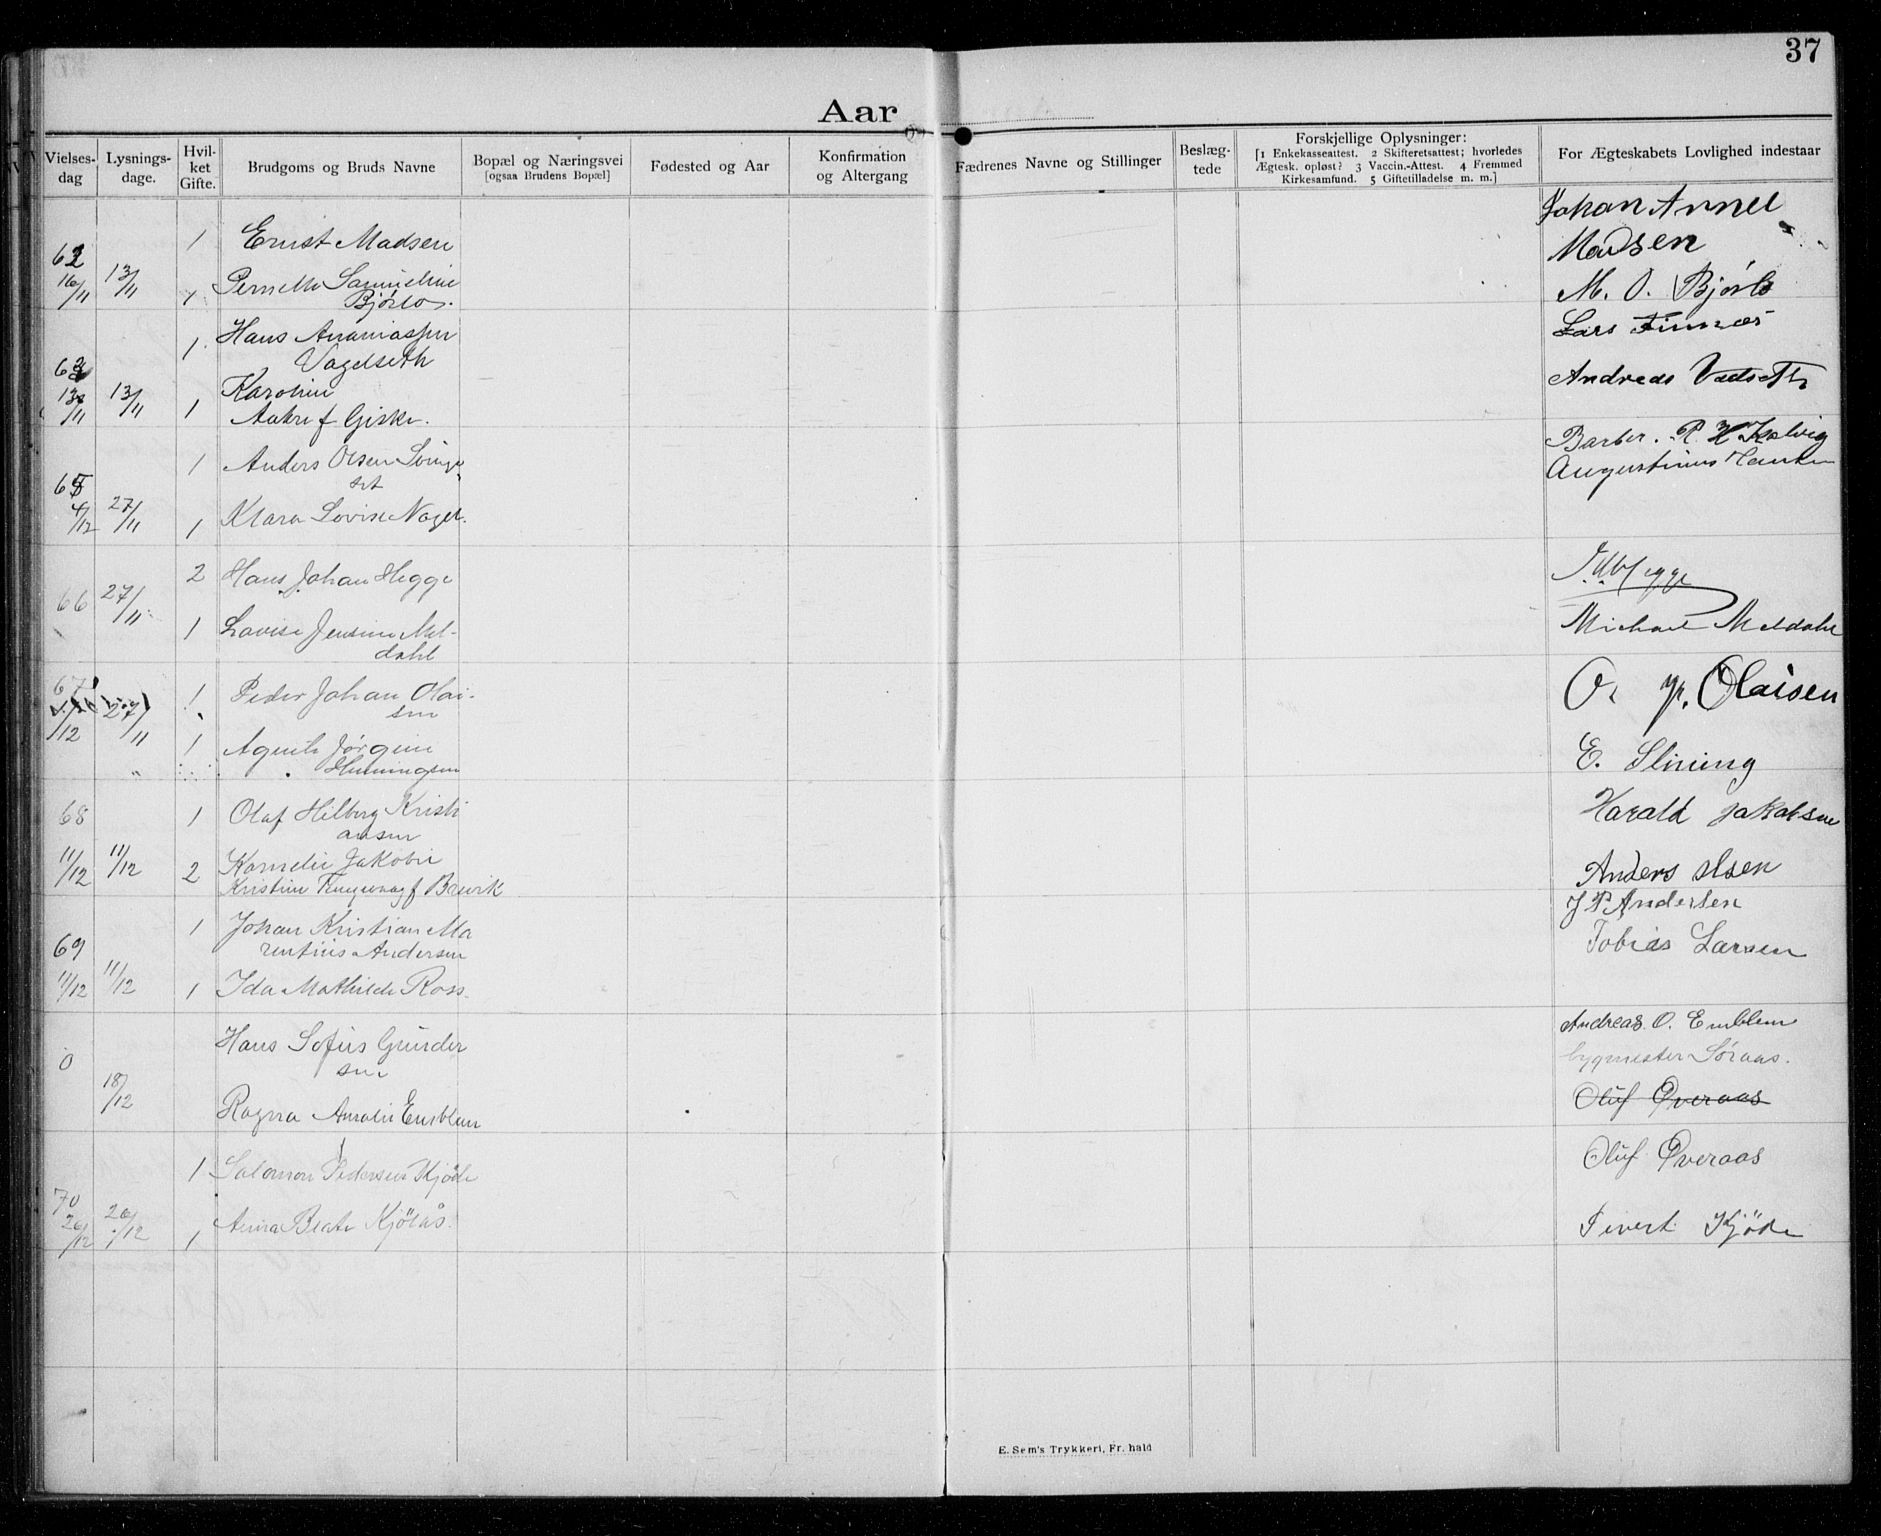 37
Aar
Vielses-dag
Lysnings-dage.
Hvil-ket Gifte.
Brudgoms og Bruds Navne
Bopæl og Næringsvei
[ogsaa Brudens Bopæl]
Fødested og Aar
Konfirmation og Altergang
Fædrenes Navne og Stillinger
Beslæg-tede
Forskjellige Oplysninger:
[1 Enkekasseattest. 2 Skifteretsattest; hvorledes
Ægtesk. opløst? 3 Vaccin.-Attest. 4 Fremmed
Kirkesamfund. 5 Giftetilladelse m. m.]
For Ægteskabets Lovlighed indestaar
1 Ernst Madsen Johan
62 Madsen
16/11 13/11 Samueline M. O. Bjørlo
Bjørlo.
1 Hans Lars
Vagelseth
63 Andreas
13/11 13/11 Karoline
1 Aakre f Giske.
1 Anders Olsen Barber.
set Augustinus
65
4/12 27/11 1 Klara Lovise
2 Hans Johan Hegge Hegge
66 27/11
1 Lovise Jensine Mel-
dahl Michael Meldahl
67 1 Peder Johan Olai-
sen O. Olaisen
/12 27/11 1 Jørgine E. Slining
Henningsen
68 1 Olaf Hilberg Kristi
ansen Harald Jakobsen
11/12 11/12 2 Kornelie Jakobie Anders Olsen
Kristine
1 Johan Kristian Ma J P Andersen
69 rentius Andersen Tobias Larsen
11/12 11/12 1 Ida Mathilde Ross.
0 Hans Sofus Gunder Andreas. O. Emblem
sen bygmester Søraas.
18/12 Oluf Øveraas
Ragna Amalie Emblem
1 Salomon Pedersen Kjøde Oluf Øveraas
70
26/12 26/12 1 Anna Beate Kjölås. Sivert Kjöde
E. Sem's Trykkeri, Fr. hald